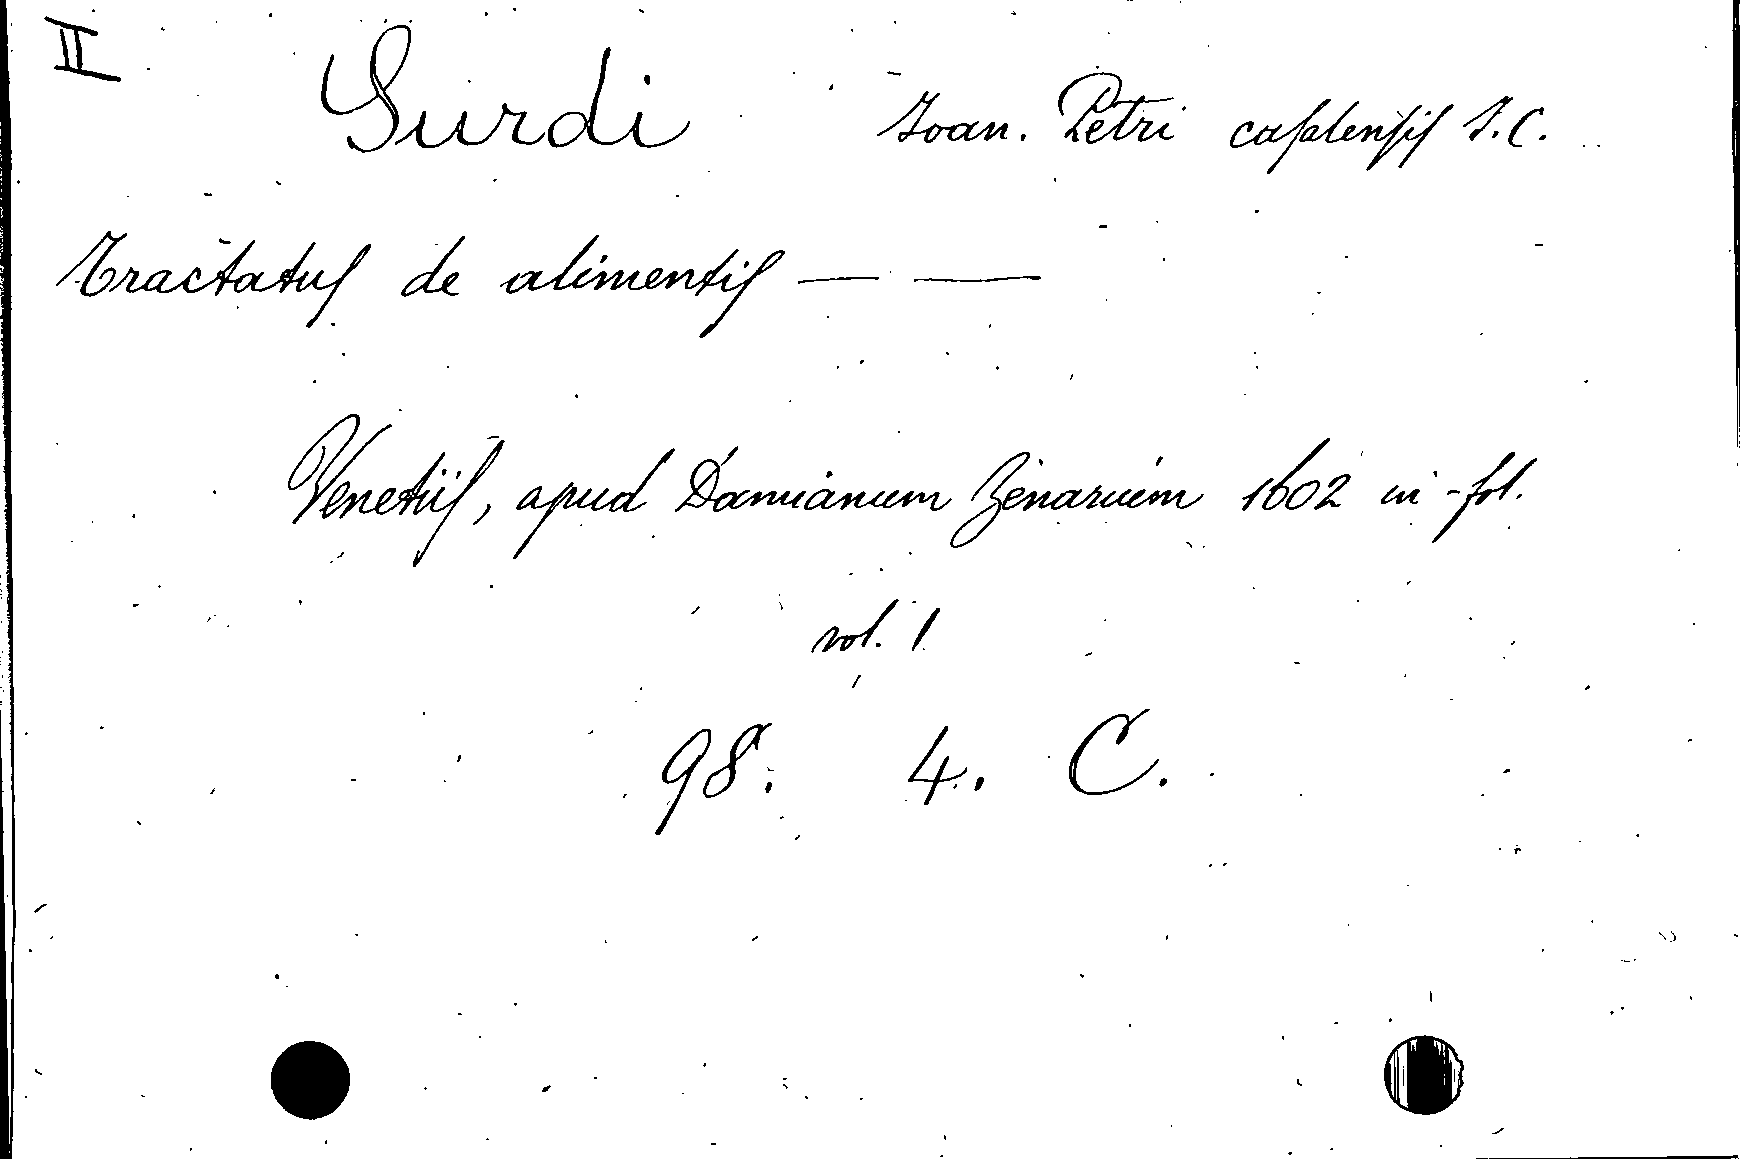 II Surdi Ioan. Petri casalensis I.C.
Tractatus de alimentis — —
Venetiis, apud Damianum Zenarium 1602 in-fol.
vol. 1
98. 4. C.